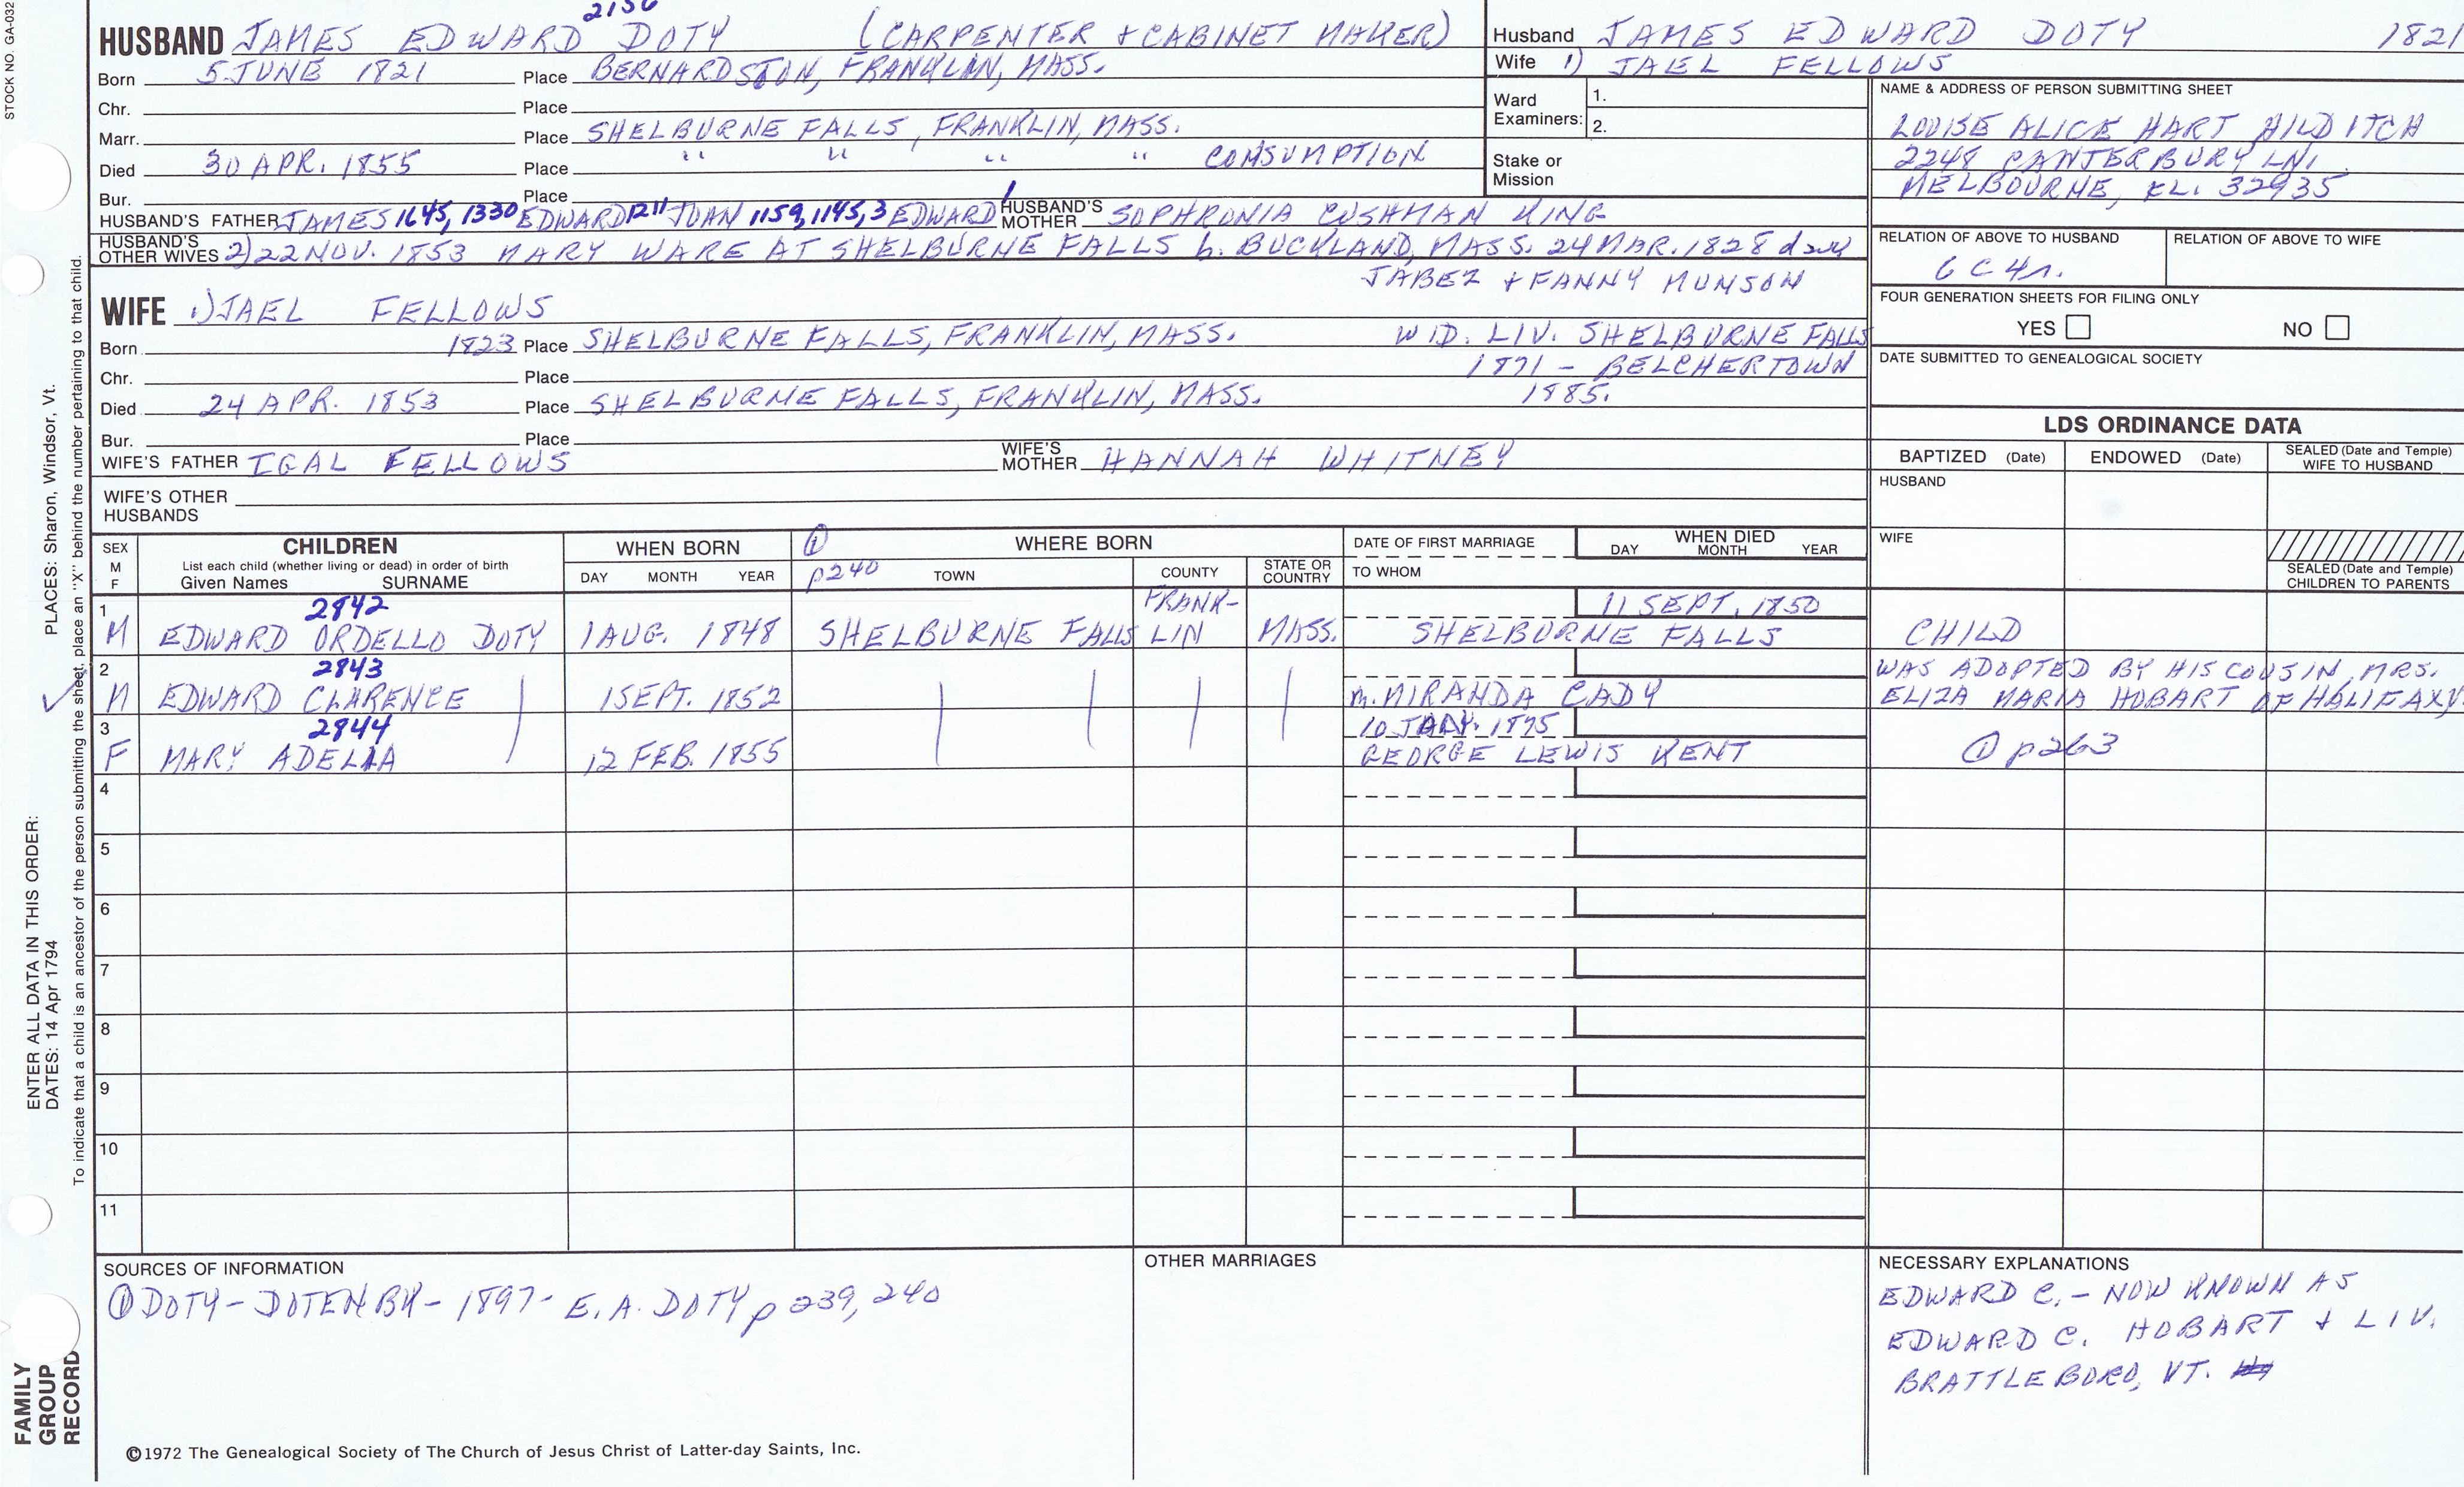 STOCK NO. GA-032
HUSBAND JAMES EDWARD DOTY (CARPENTER + CABINET MAKER)
Born 5 JUNE 1821 Place BERNARDSTON, FRANKLIN, MASS.
Chr. Place
Marr. Place SHELBURNE FALLS, FRANKLIN, MASS.
Died 30 APR. 1855 Place " " " " CONSUMPTION
Bur. Place
HUSBAND'S FATHER JAMES 1645, 1330 EDWARD 1211 JOHN 1159, 1145, 3 EDWARD 1 HUSBAND'S MOTHER SOPHRONIA CUSHMAN KING
HUSBAND'S OTHER WIVES 2) 22 NOV. 1853 MARY WARE AT SHELBURNE FALLS b. BUCKLAND, MASS. 24 MAR. 1828 dau
JABEZ + FANNY MUNSON
Husband JAMES EDWARD DOTY 1821
Wife 1) JAEL FELLOWS
Ward Examiners: 1.
2.
Stake or Mission
NAME & ADDRESS OF PERSON SUBMITTING SHEET
LOUISE ALICE HART HILDITCH
2248 CANTERBURY LN.
MELBOURNE, FL. 32935
RELATION OF ABOVE TO HUSBAND RELATION OF ABOVE TO WIFE
6 C 4r.
FOUR GENERATION SHEETS FOR FILING ONLY
YES NO
DATE SUBMITTED TO GENEALOGICAL SOCIETY
WIFE 1) JAEL FELLOWS
Born 1823 Place SHELBURNE FALLS, FRANKLIN, MASS. WID. LIV. SHELBURNE FALLS
Chr. Place 1871 - BELCHERTOWN
Died 24 APR. 1853 Place SHELBURNE FALLS, FRANKLIN, MASS. 1885.
Bur. Place
WIFE'S FATHER IGAL FELLOWS WIFE'S MOTHER HANNAH WHITNEY
WIFE'S OTHER HUSBANDS
LDS ORDINANCE DATA
BAPTIZED (Date) ENDOWED (Date) SEALED (Date and Temple) WIFE TO HUSBAND
HUSBAND
WIFE
SEALED (Date and Temple) CHILDREN TO PARENTS
SEX M F CHILDREN List each child (whether living or dead) in order of birth Given Names SURNAME
WHEN BORN DAY MONTH YEAR
① p240 WHERE BORN TOWN COUNTY STATE OR COUNTRY
DATE OF FIRST MARRIAGE TO WHOM
WHEN DIED DAY MONTH YEAR
1 2842 FRANK- 11 SEPT. 1850
M EDWARD ORDELLO DOTY 1 AUG. 1848 SHELBURNE FALLS LIN MASS. SHELBURNE FALLS CHILD
2 2843 WAS ADOPTED BY HIS COUSIN, MRS.
M EDWARD CLARENCE 1 SEPT. 1852 m. MIRANDA CADY ELIZA MARIA HOBART OF HALIFAX V.
3 2844 10 JANY. 1875
F MARY ADELIA 12 FEB. 1855 GEORGE LEWIS KENT ① p263
4
5
6
7
8
9
10
11
SOURCES OF INFORMATION
① DOTY - DOTEN BK - 1897 - E. A. DOTY p 239, 240
OTHER MARRIAGES
NECESSARY EXPLANATIONS
EDWARD C. - NOW KNOWN AS
EDWARD C. HOBART + LIV.
BRATTLEBORO, VT.
©1972 The Genealogical Society of The Church of Jesus Christ of Latter-day Saints, Inc.
FAMILY GROUP RECORD
ENTER ALL DATA IN THIS ORDER:
DATES: 14 Apr 1794 PLACES: Sharon, Windsor, Vt.
To indicate that a child is an ancestor of the person submitting the sheet, place an "X" behind the number pertaining to that child.